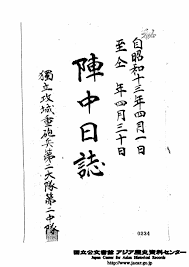 自昭和十三年四月一日
至仝 年四月三十日
陣中日誌
獨立攻城重砲兵第二大隊第二中隊
0234
國立公文書館 アジア歴史資料センター
Japan Center for Asian Historical Records
http://www.jacar.go.jp